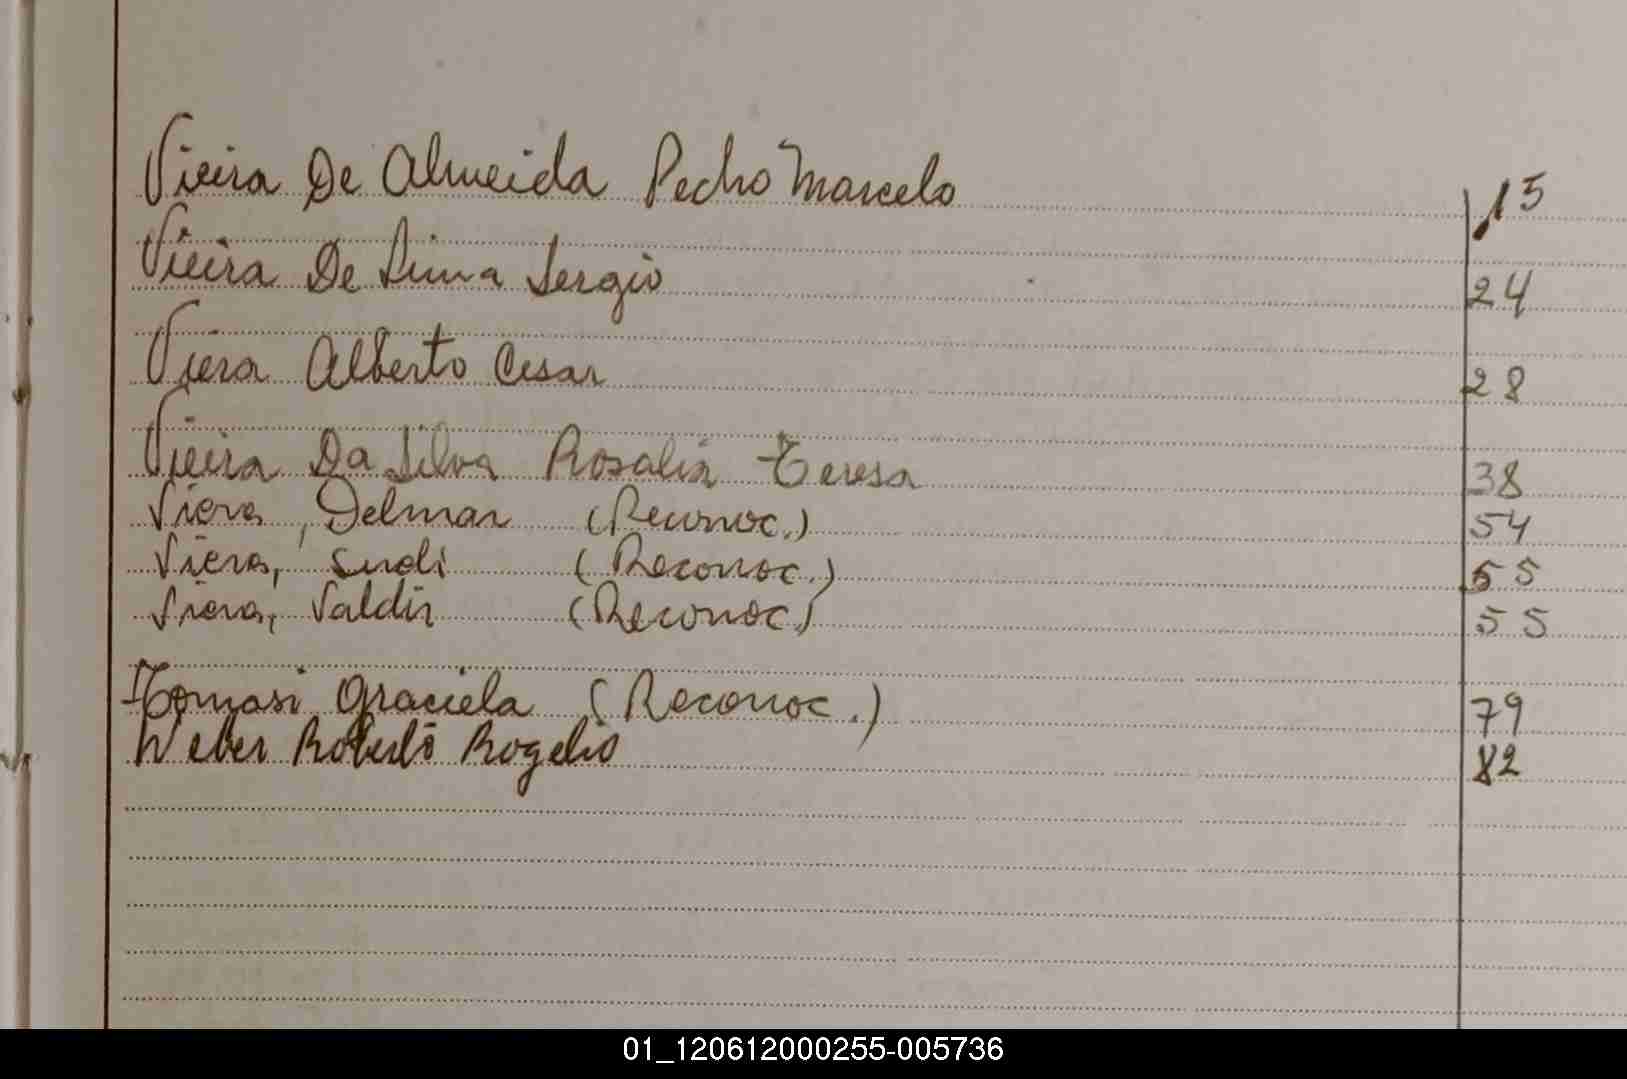 Vieira De Almeida Pedro Marcelo 15
Vieira De Lima Sergio 24
Viera Alberto Cesar 28
Vieira Da Silva Rosalia Teresa 38
Viera, Delmar (Reconoc.) 54
Viera, (Reconoc.) 55
Viera, Valdir (Reconoc.) 55
Tomasi Graciela (Reconoc.) 79
Weber Roberto Rogelio 82
01_120612000255-005736